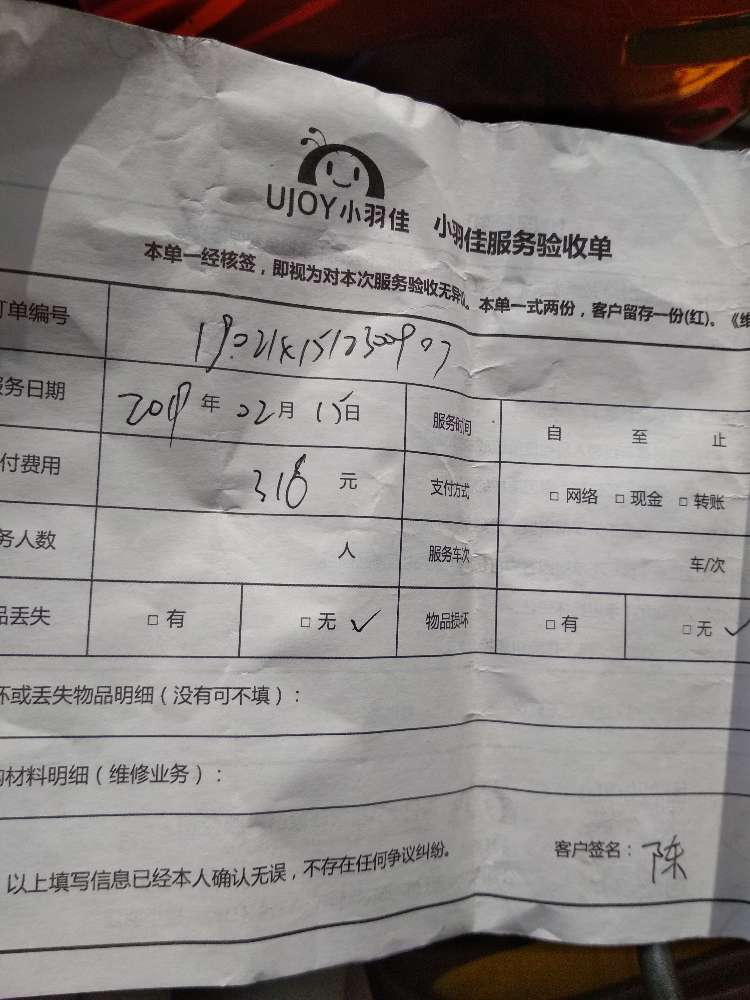 UJOY小羽佳 小羽佳服务验收单
本单一经核签，即视为对本次服务验收无异议。本单一式两份，客户留存一份(红)。《维
订单编号
服务日期 2019年 02月 15日 服务时间 自 至 止
付费用 318 元 支付方式 □ 网络 □ 现金 □ 转账
务人数 人 服务车次 车/次
品丢失 □ 有 □ 无 ✓ 物品损坏 □ 有 □ 无 ✓
坏或丢失物品明细（没有可不填）：
材料明细（维修业务）：
以上填写信息已经本人确认无误，不存在任何争议纠纷。 客户签名：陈